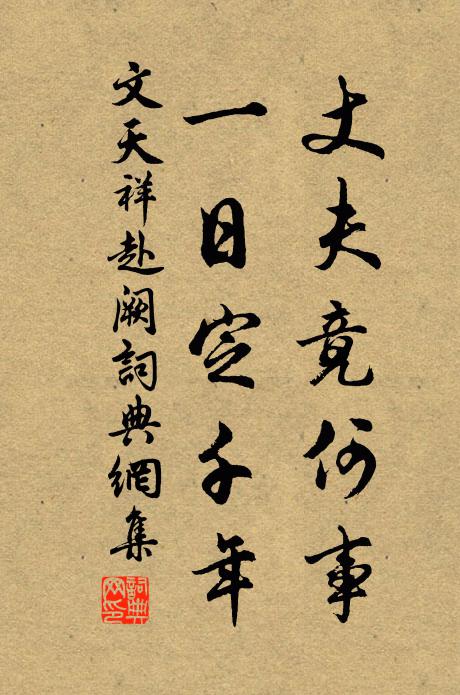 丈夫竟何事
一日定千年
文天祥赴阙詞典網集
詞典網印